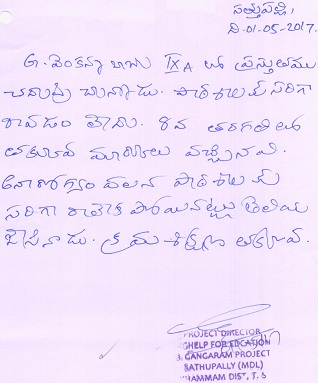 సత్తుపల్లి,
ది.01-05-2017.
G. వెంకన్న బాబు IXA లో ప్రస్తుతము
చదువుచున్నాడు. పాఠశాలకు సరిగా
రావడం లేదు. 8వ తరగతిలో
తక్కువ మార్కులు వచ్చినవి.
అనారోగ్యం వలన పాఠశాలకు
సరిగా రాలేక పోయినట్లు తెలియ
జేసినాడు. క్రమశిక్షణ తక్కువ.
PROJECT DIRECTOR
HELP FOR EDUCATION
GANGARAM PROJECT
SATHUPALLY (MDL)
KHAMMAM DIST, T.S